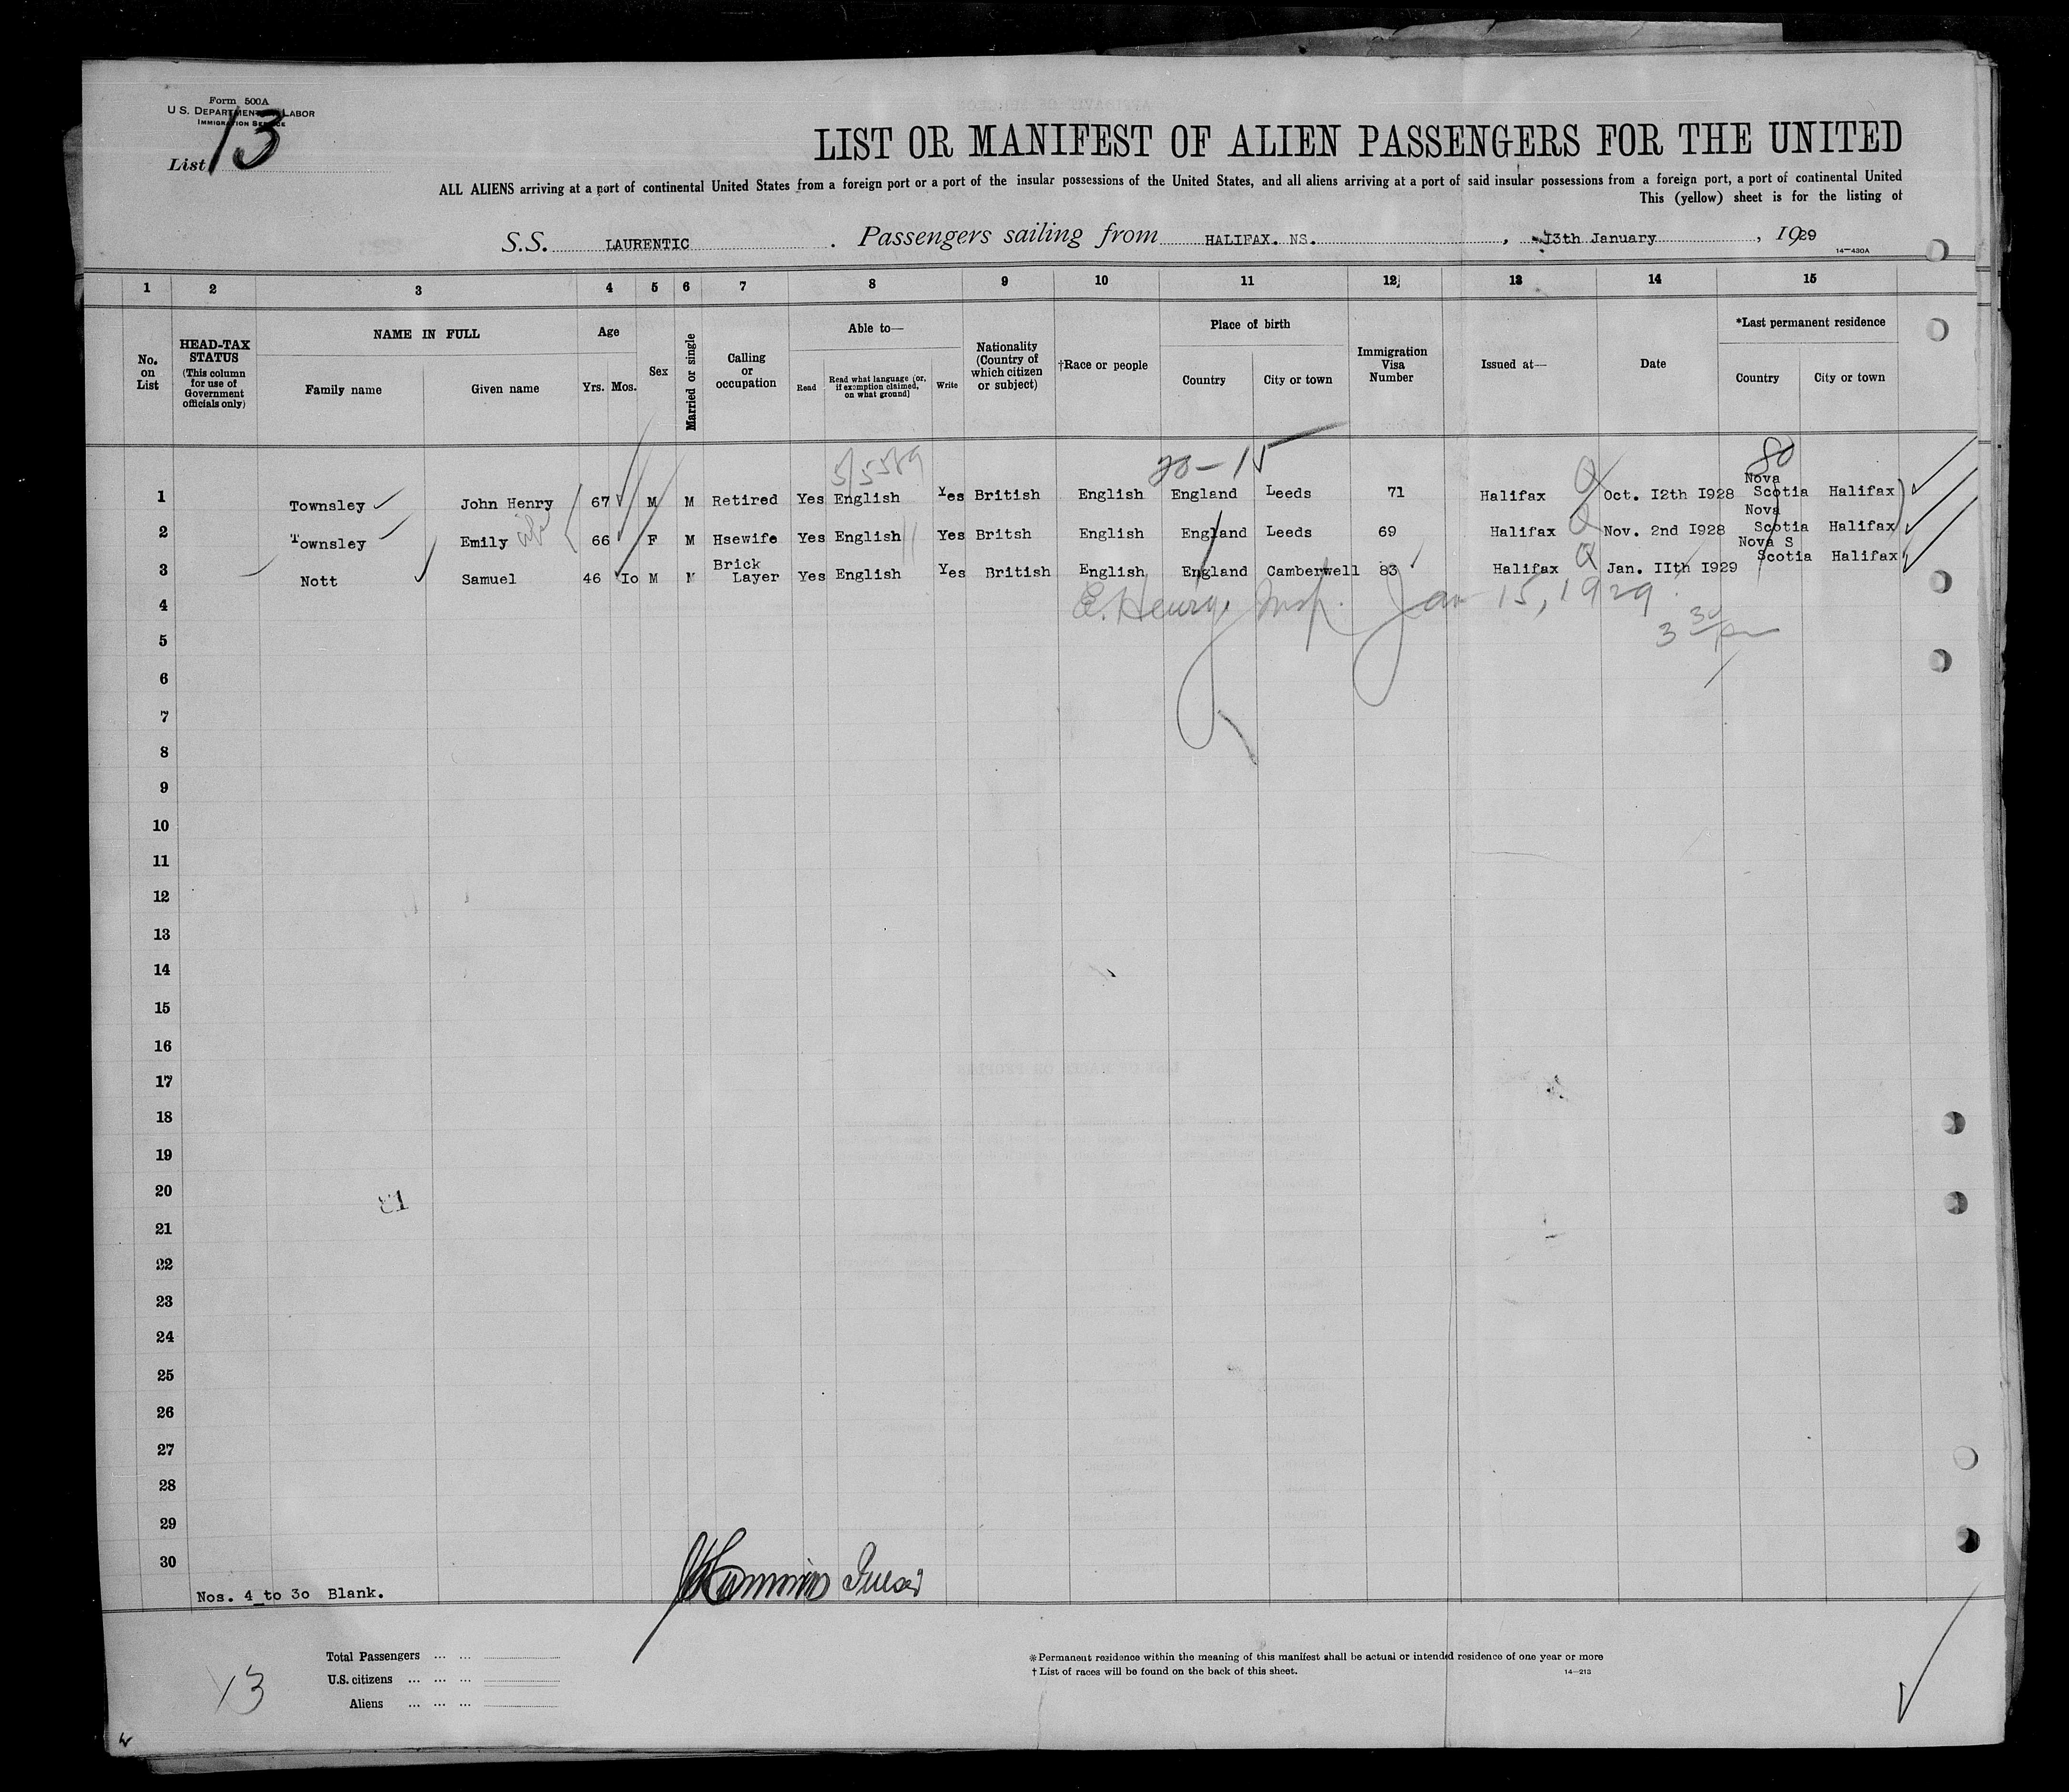 Form 500A
U.S. DEPARTMENT OF LABOR
IMMIGRATION SERVICE
List 13
LIST OR MANIFEST OF ALIEN PASSENGERS FOR THE UNITED
ALL ALIENS arriving at a port of continental United States from a foreign port or a port of the insular possessions of the United States, and all aliens arriving at a port of said insular possessions from a foreign port, a port of continental United
This (yellow) sheet is for the listing of
S.S. LAURENTIC . Passengers sailing from HALIFAX. NS. , 13th January , 1929
14—430A
1 2 3 4 5 6 7 8 9 10 11 12 13 14 15
No. on List
HEAD-TAX STATUS (This column for use of Government officials only)
NAME IN FULL
Family name Given name
Age
Yrs. Mos.
Sex
Married or single
Calling or occupation
Able to—
Read
Read what language (or, if exemption claimed, on what ground)
Write
Nationality (Country of which citizen or subject)
†Race or people
Place of birth
Country City or town
Immigration Visa Number
Issued at—
Date
*Last permanent residence
Country City or town
20-15 80
1 Townsley John Henry 67 M M Retired Yes English Yes British English England Leeds 71 Halifax Oct. I2th I928 Nova Scotia Halifax
2 Townsley Emily 66 F M Hsewife Yes English Yes Britsh English England Leeds 69 Halifax Nov. 2nd I928 Nova Scotia Halifax
3 Nott Samuel 46 Io M M Brick Layer Yes English Yes British English England Camberwell 83 Halifax Jan. IIth I929 Nova S Scotia Halifax
E. Henry, Insp. Jan 15, 1929.
3 30 pm
4
5
6
7
8
9
10
11
12
13
14
15
16
17
18
19
20
21
22
23
24
25
26
27
28
29
30
Nos. 4 to 3o Blank.
Total Passengers ... ...
U.S. citizens ... ... ...
Aliens ... ... ...
13
*Permanent residence within the meaning of this manifest shall be actual or intended residence of one year or more
†List of races will be found on the back of this sheet.
14—213